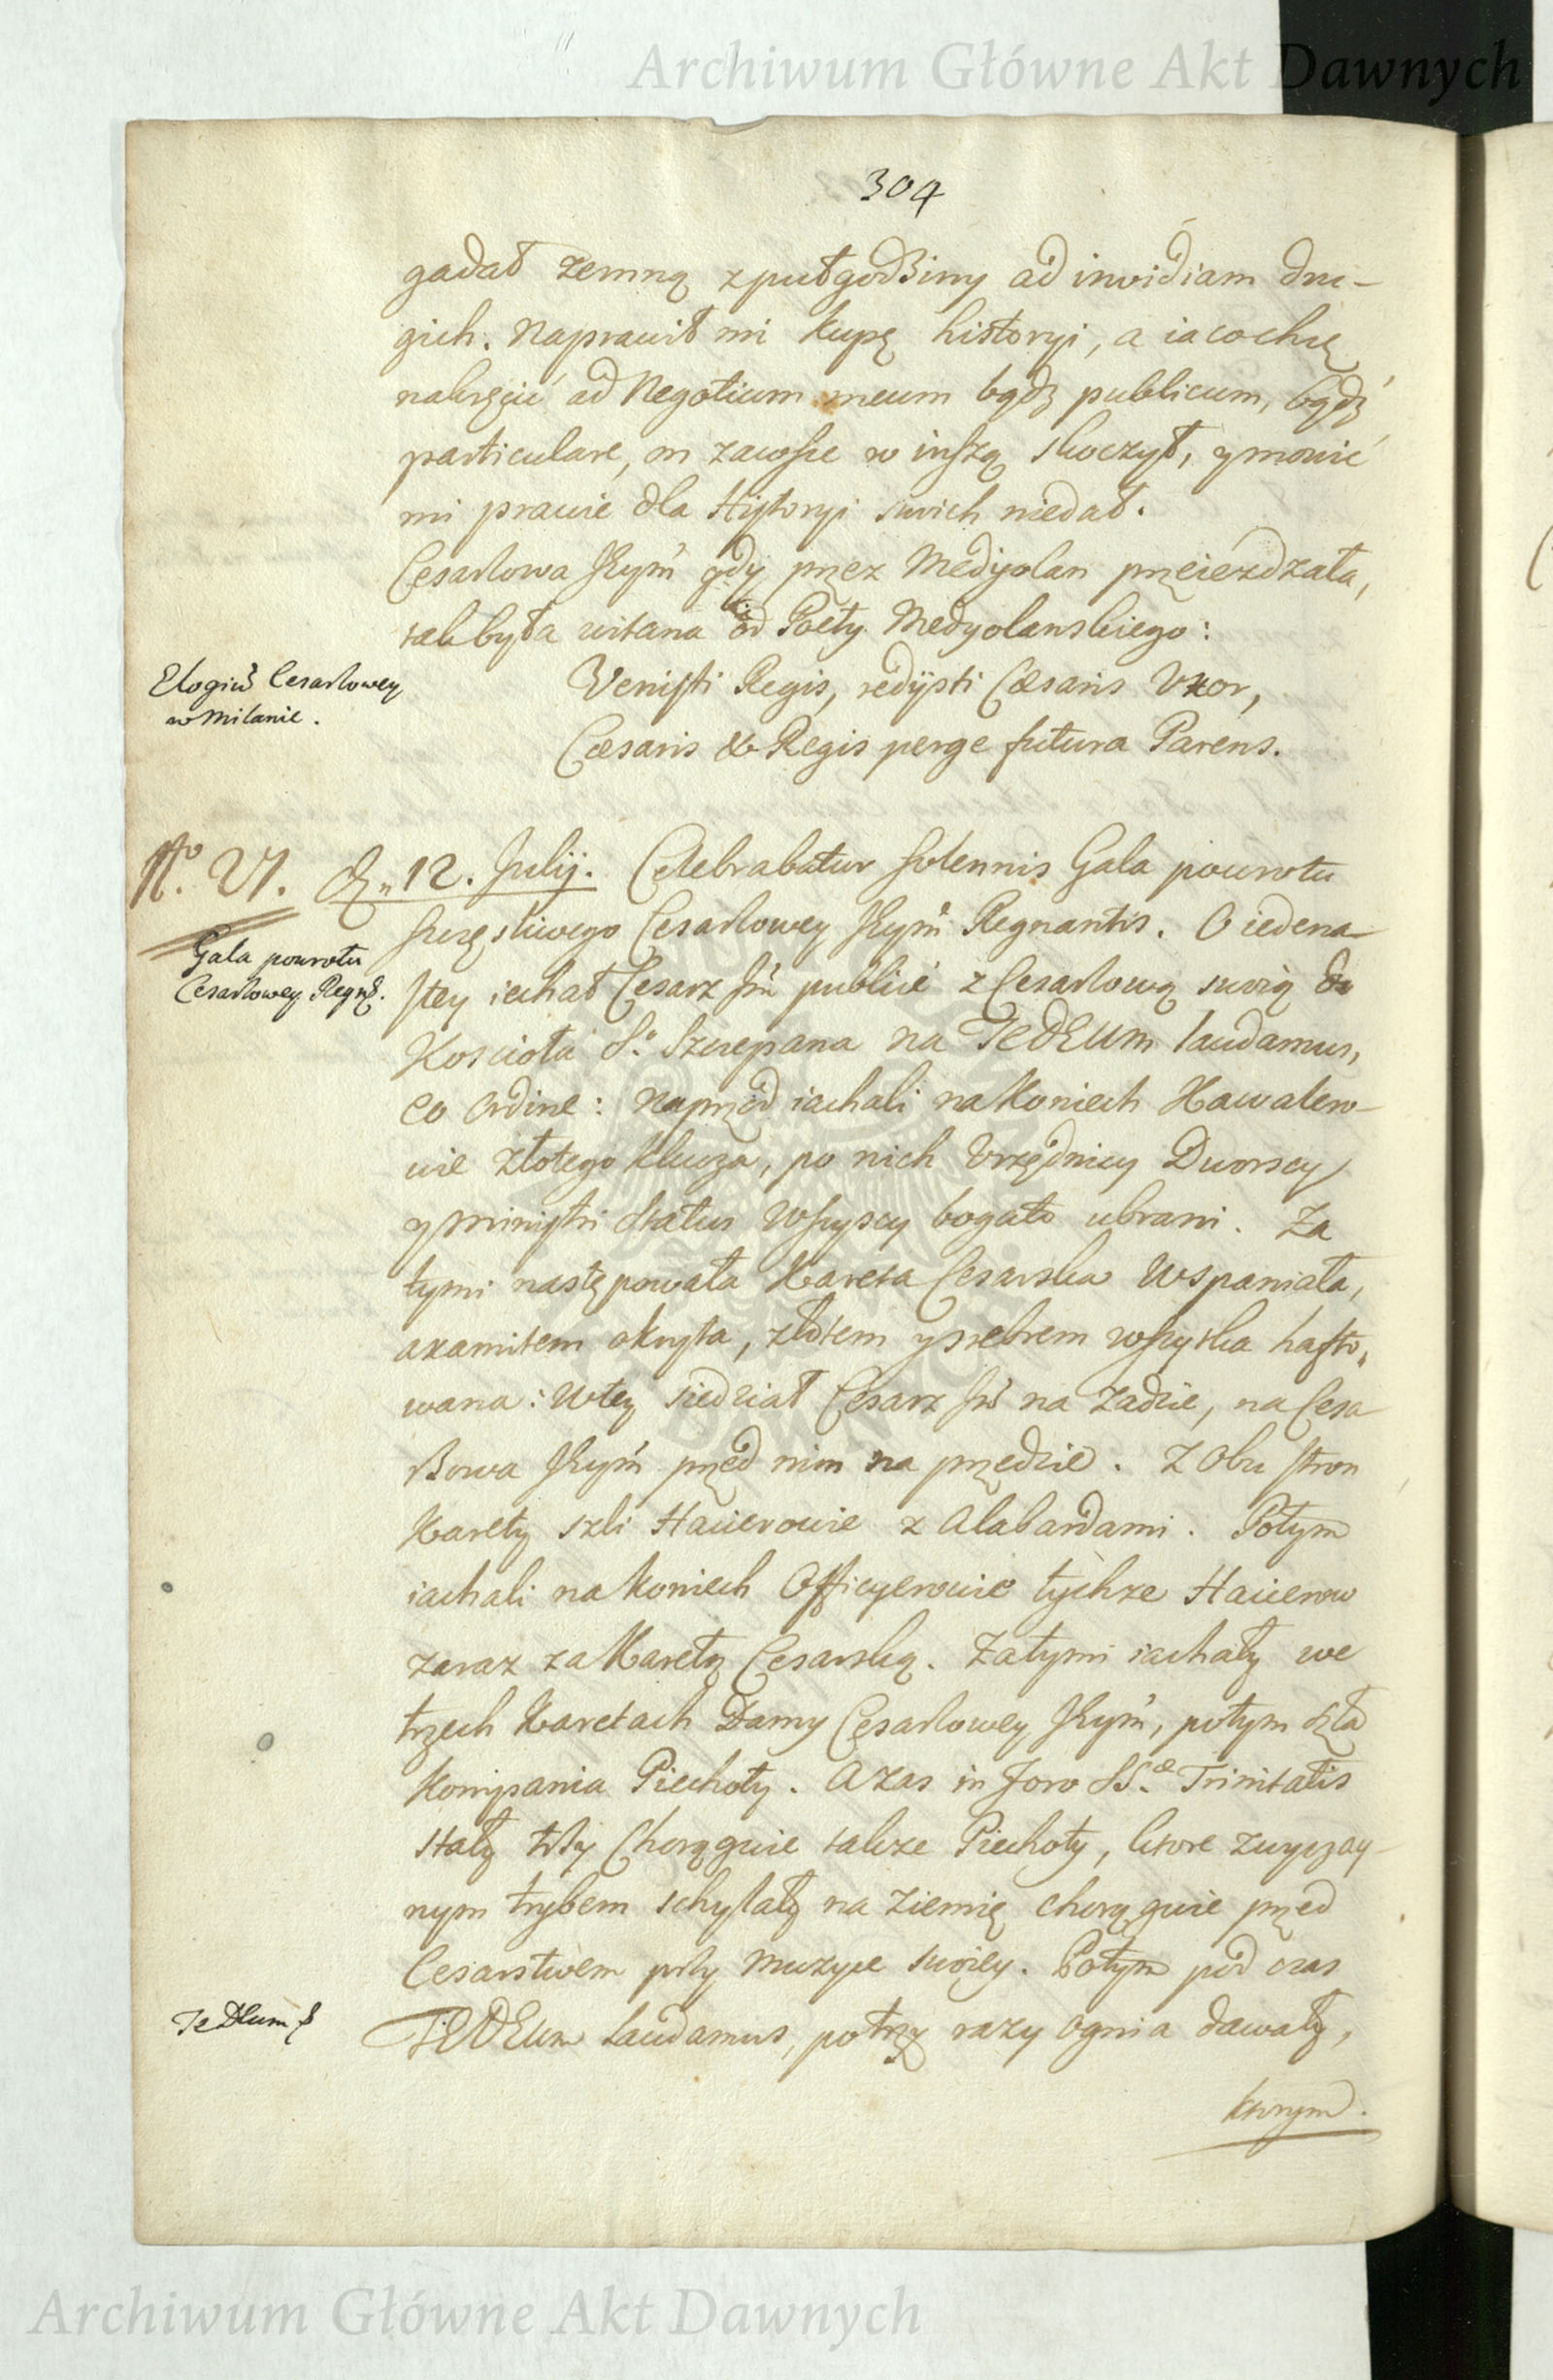 Archiwum Główne Akt Dawnych
304
gadał zemną z puł godziny ad invidiam dru-
gich. Naprawił mi kupę historyi, a ia co chcę
nakręcić ad Negotium meum bądz publicum, bądz
particulare, on zawsze w inszą skoczył, y mowić
mi prawie dla Historyi swich niedał.
Cesarzowa Jeym̃ gdy przez Medyolan przeiezdzała,
tak była witana od Poety Medyolanskiego:
Elogiũ Cesarzowey
w Milanie.
Venisti Regis, redijsti Cæsaris Vxor,
Cæsaris & Regis perge futura Parens.
No. VI. D. 12. Julij. Celebrabatur solennis Gala powrotu
Gala powrotu
Cesarzowey Regnt.
szczęsliwego Cesarzowey Jeym̃ Regnantis. O iedena-
stey iechał Cesarz Jm̃ publicé z Cesarzową swoią do
Koscioła So. Szczepana na Te DEUm laudamus,
eo ordine: naprzod iachali na Koniech Kawalero-
wie złotego klucza, po nich Vrzędnicy Dworscy
y ministri status wszyscy bogato ubrani. Za
tymi następowała Kareta Cesarska wspaniała,
axamitem okryta, złotem y srebrem wszytka hafto,
wana: w tey siedział Cesarz Jm̃ na zadzie, na Cesa-
rzowa Jeym̃ przed nim na przedzie. Z obu stron
Karety szli Haiierowie z Alabardami. Potym
iachali na koniech Officyerowie tychze Haiierow
zaraz za Karetą Cesarską. Za tymi iachały we
trzech Karetach Damy Cesarzowey Jeym̃, potym szła
Kompania Piechoty. A zas in foro SS.æ Trinitatis
stały trzy Chorągwie takze Piechoty, ktore zwyczay-
nym trybem schylały na ziemię chorągwie przed
Cesarstwem przy muzyce swoiey. Potym pod czas
Te DEum
Te DEum laudamus, potrzy razy ognia dawały,
ktorym.
Archiwum Główne Akt Dawnych